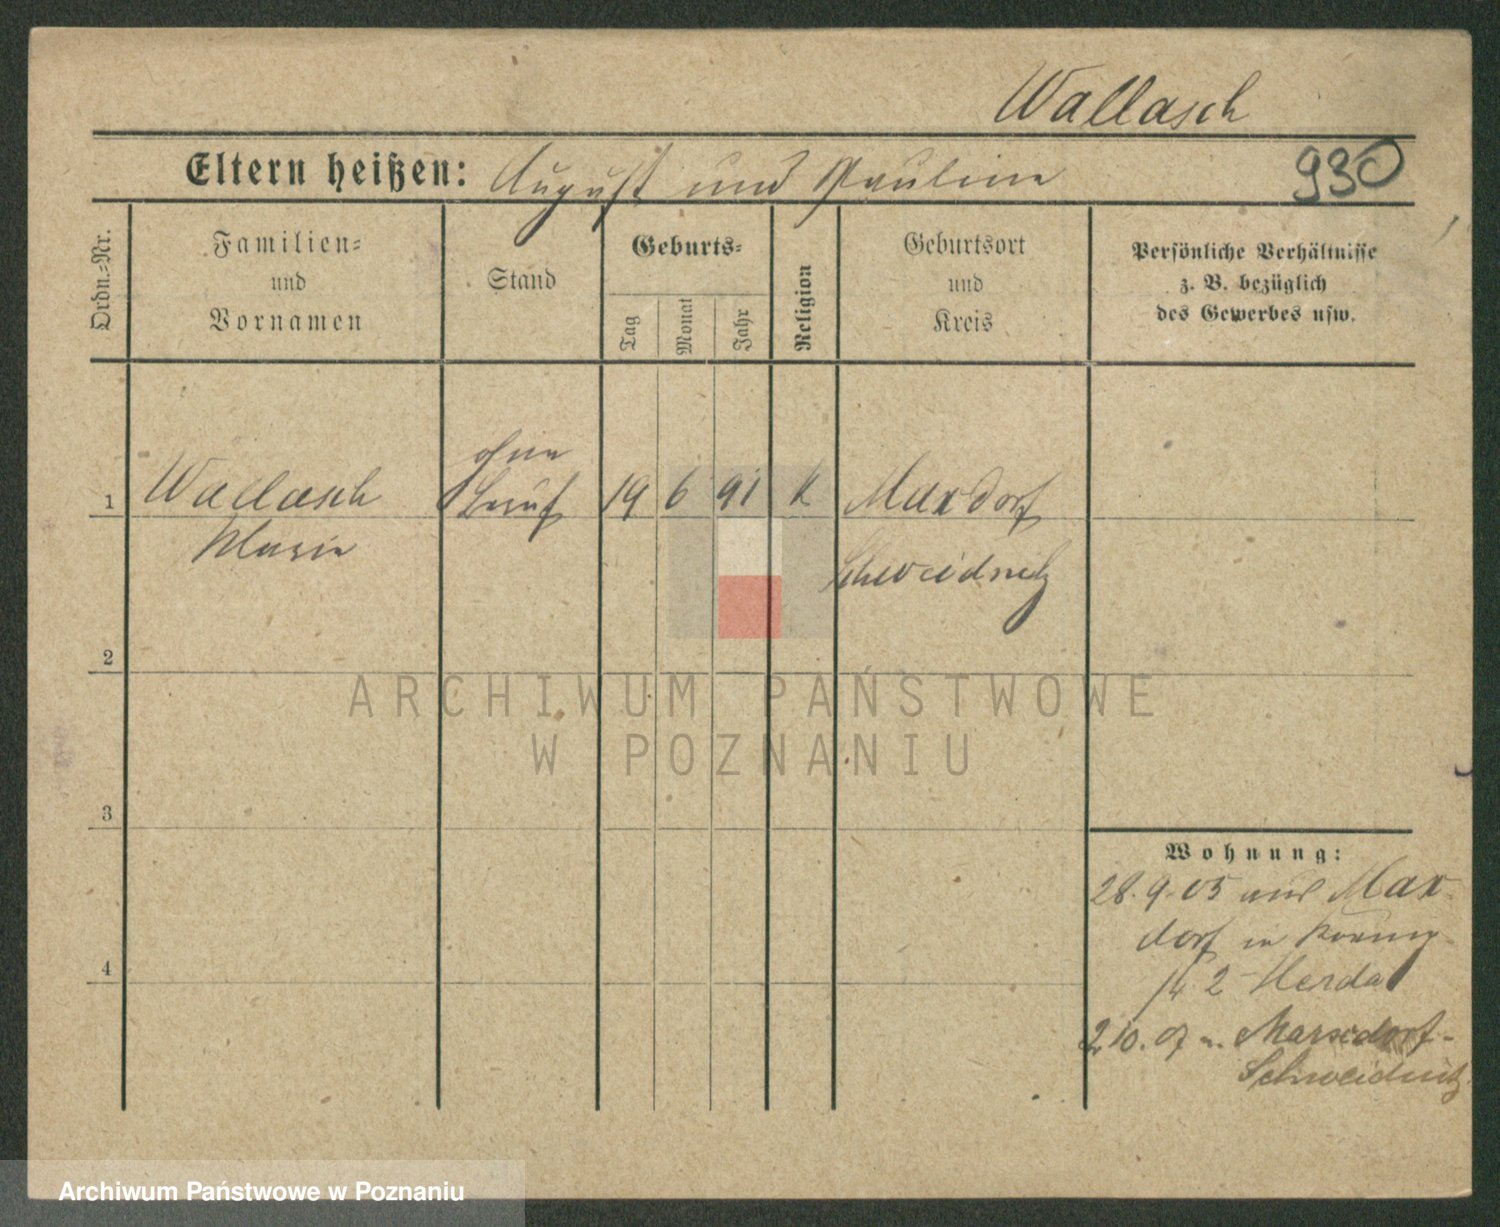 Wallasch
Eltern heißen: August und Pauline 930
Ordn.-Nr.
Familien-
und
Vornamen
Stand
Geburts-
Tag
Monat
Jahr
Religion
Geburtsort
und
Kreis
Persönliche Verhältnisse
z. B. bezüglich
des Gewerbes usw.
ohne
1 Wallasch Beruf 19 6 91 k Marxdorf
Marie
Schweidnitz
2
ARCHIWUM PAŃSTWOWE
W POZNANIU
3
Wohnung:
28. 9. 05 aus Marx-
dorf in
4
14 2 Herda
2 10. 07 n. Marxdorf-
Schweidnitz
Archiwum Państwowe w Poznaniu